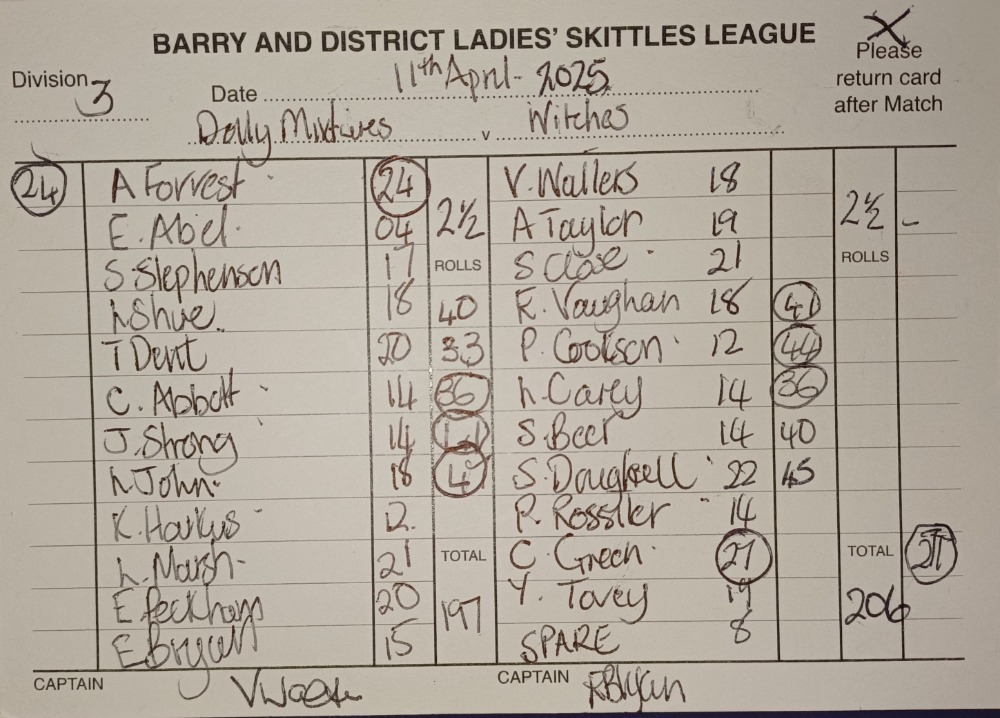 BARRY AND DISTRICT LADIES' SKITTLES LEAGUE
X Please return card after Match
Division 3
Date 11th April - 2025
Dolly Mixtures v Witches
24 A Forrest 24 V. Wallers 18
E. Abel 04 2½ A Taylor 19 2½ -
S. Stephenson 17 ROLLS S Close 21 ROLLS
L Shue 18 40 K. Vaughan 18 41
T Dent 20 33 P. Cookson 12 44
C. Abbott 14 36 L. Carey 14 36
J. Strong 14 S. Beer 14 40
L John 18 4 S. 22 45
K. 12 P. Rossiter 14
L. Marsh 21 TOTAL C. Green 27 TOTAL 27
E Peckham 20 197 Y. Tovey 19 206
E Bryant 15 SPARE 8
CAPTAIN CAPTAIN